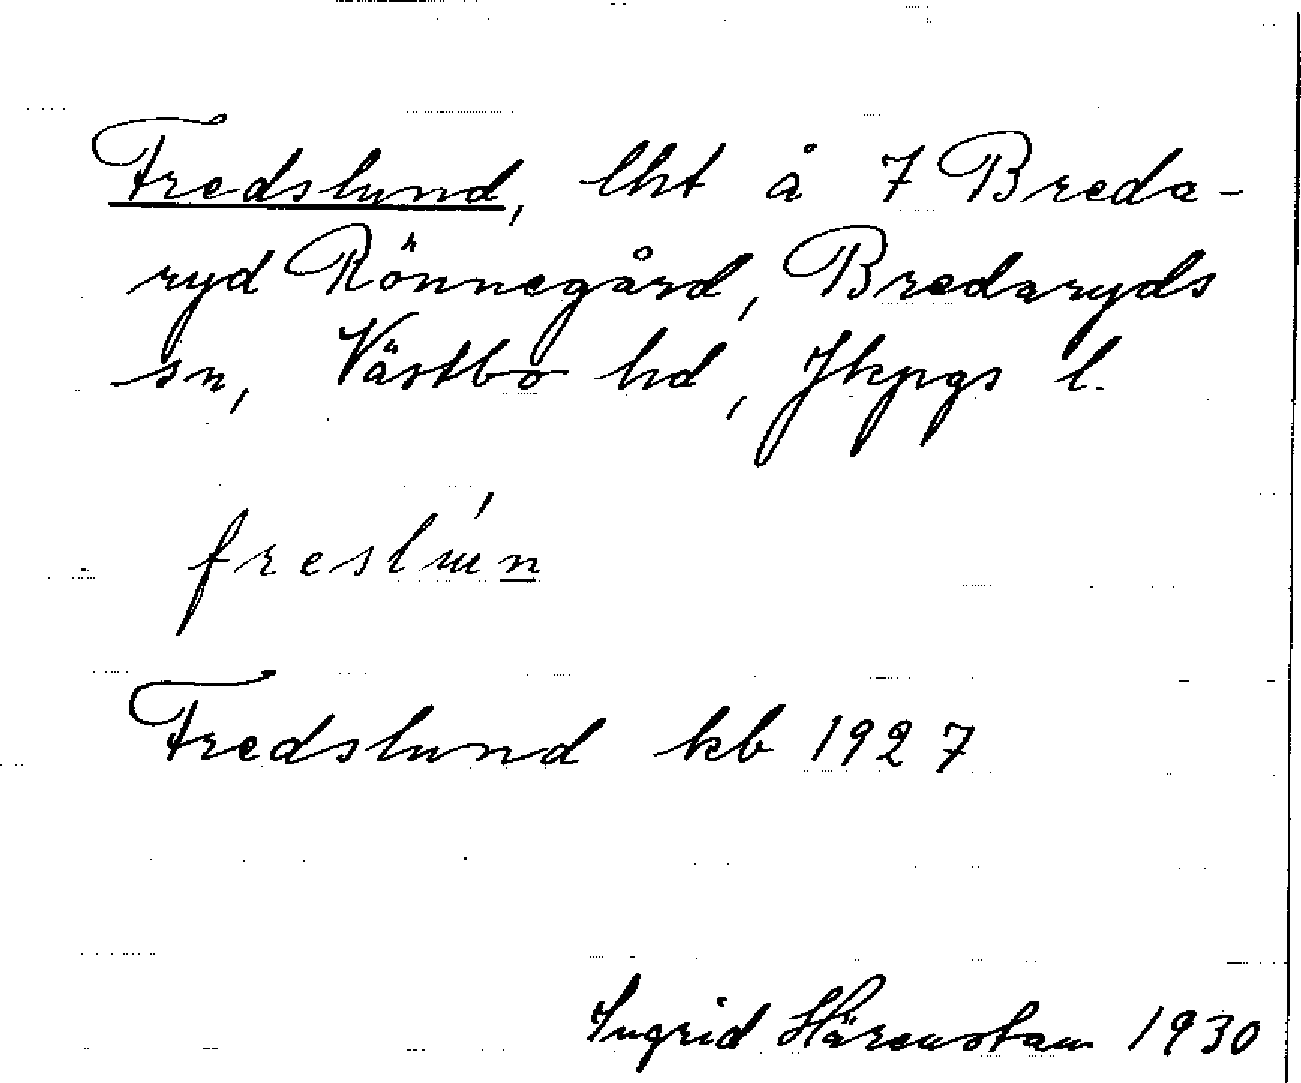 Fredslund, lht å 7 Breda-
ryd Rönnegård, Bredaryds
sn, Västbo hd, Jkpgs l.
freslɯ́n
Fredslund kb 1927
Ingrid Härenstam 1930